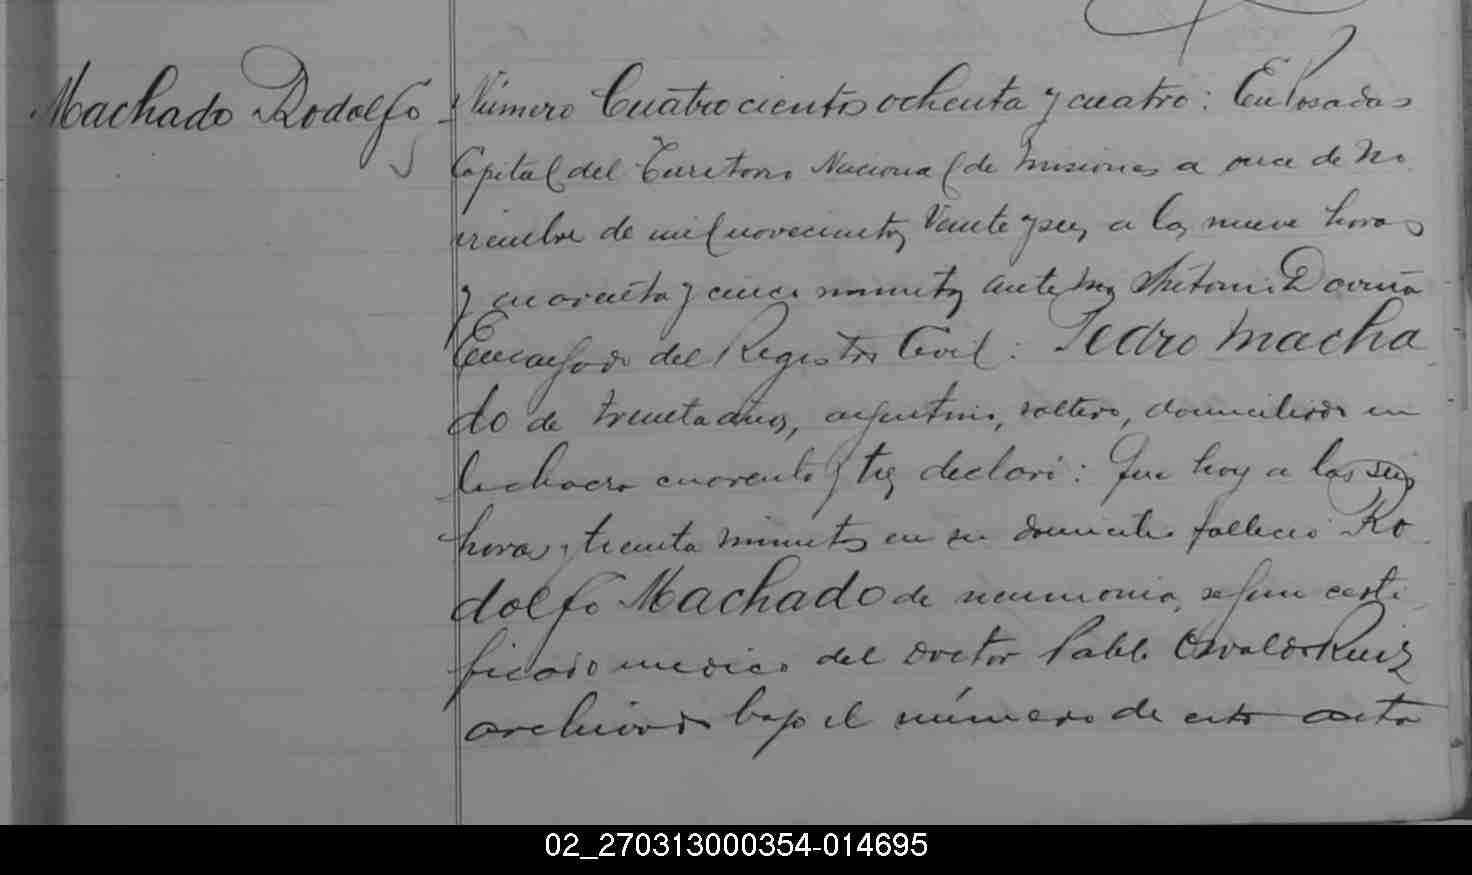 Machado Rodolfo
Número Cuatrocientos ochenta y cuatro: En Posadas
Capital del Territorio Nacional de Misiones a once de no
viembre de mil novecientos veinte y seis, a las nueve horas
y cuarenta y cinco minutos, ante mi Antonio
Encargado del Registro Civil: Pedro Macha
do de treinta años, argentino, soltero, domiciliado en
la chacra cuarenta y tres declaró: Que hoy a las seis
horas y treinta minutos en su domicilio falleció Ro
dolfo Machado de neumonia, segun certi
ficado medico del doctor Pablo Osvaldo Ruiz
archivado bajo el número de esta acta
02_270313000354-014695